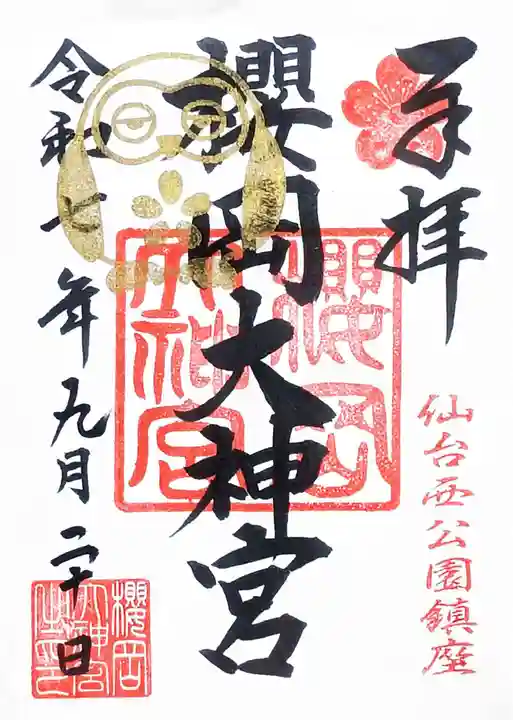 奉拝
仙台西公園鎮座
櫻岡大神宮
櫻岡
大神宮
令和七年九月二十日
櫻岡
大神宮